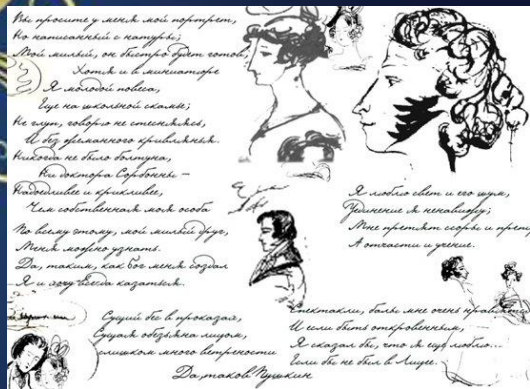 Вы просите у меня мой портрет,
Но написанный с натуры;
Мой милый, он быстро будет готов,
Хотя и в миниатюре
Я молодой повеса,
Еще на школьной скамье;
Не глуп, говорю не стесняясь,
И без жеманного кривлянья.
Никогда не было болтуна,
Ни доктора Сорбонны —
Надоедливее и крикливее,
Чем собственная моя особа
По всему этому, мой милый друг,
Меня можно узнать.
Да, таким, как Бог меня создал
Я и хочу всегда казаться.
Сущий бес в проказах,
Сущая обезьяна лицом,
слишком много ветрености
Да, таков Пушкин
Я люблю свет и его шум,
Уединение я ненавижу;
Мне претят ссоры и
А отчасти и учение.
Спектакли, балы мне очень
И если быть откровенным,
Я сказал бы, что я еще люблю...
Если бы не был в Лицее.